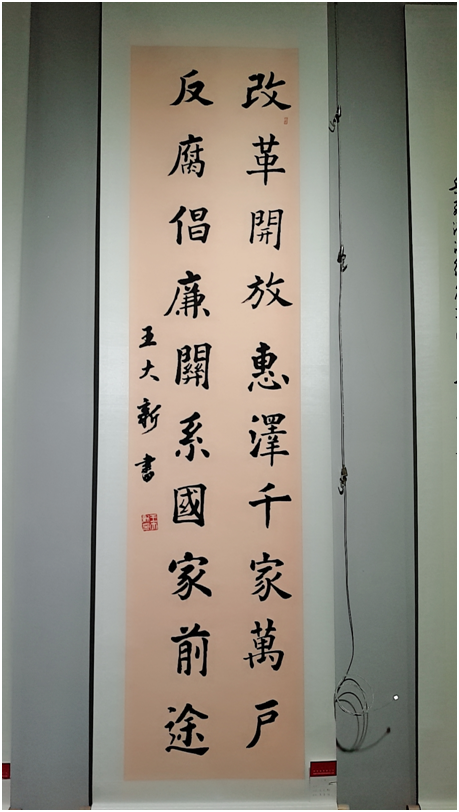 改革開放惠澤千家萬戶
反腐倡廉關系國家前途
王大新書